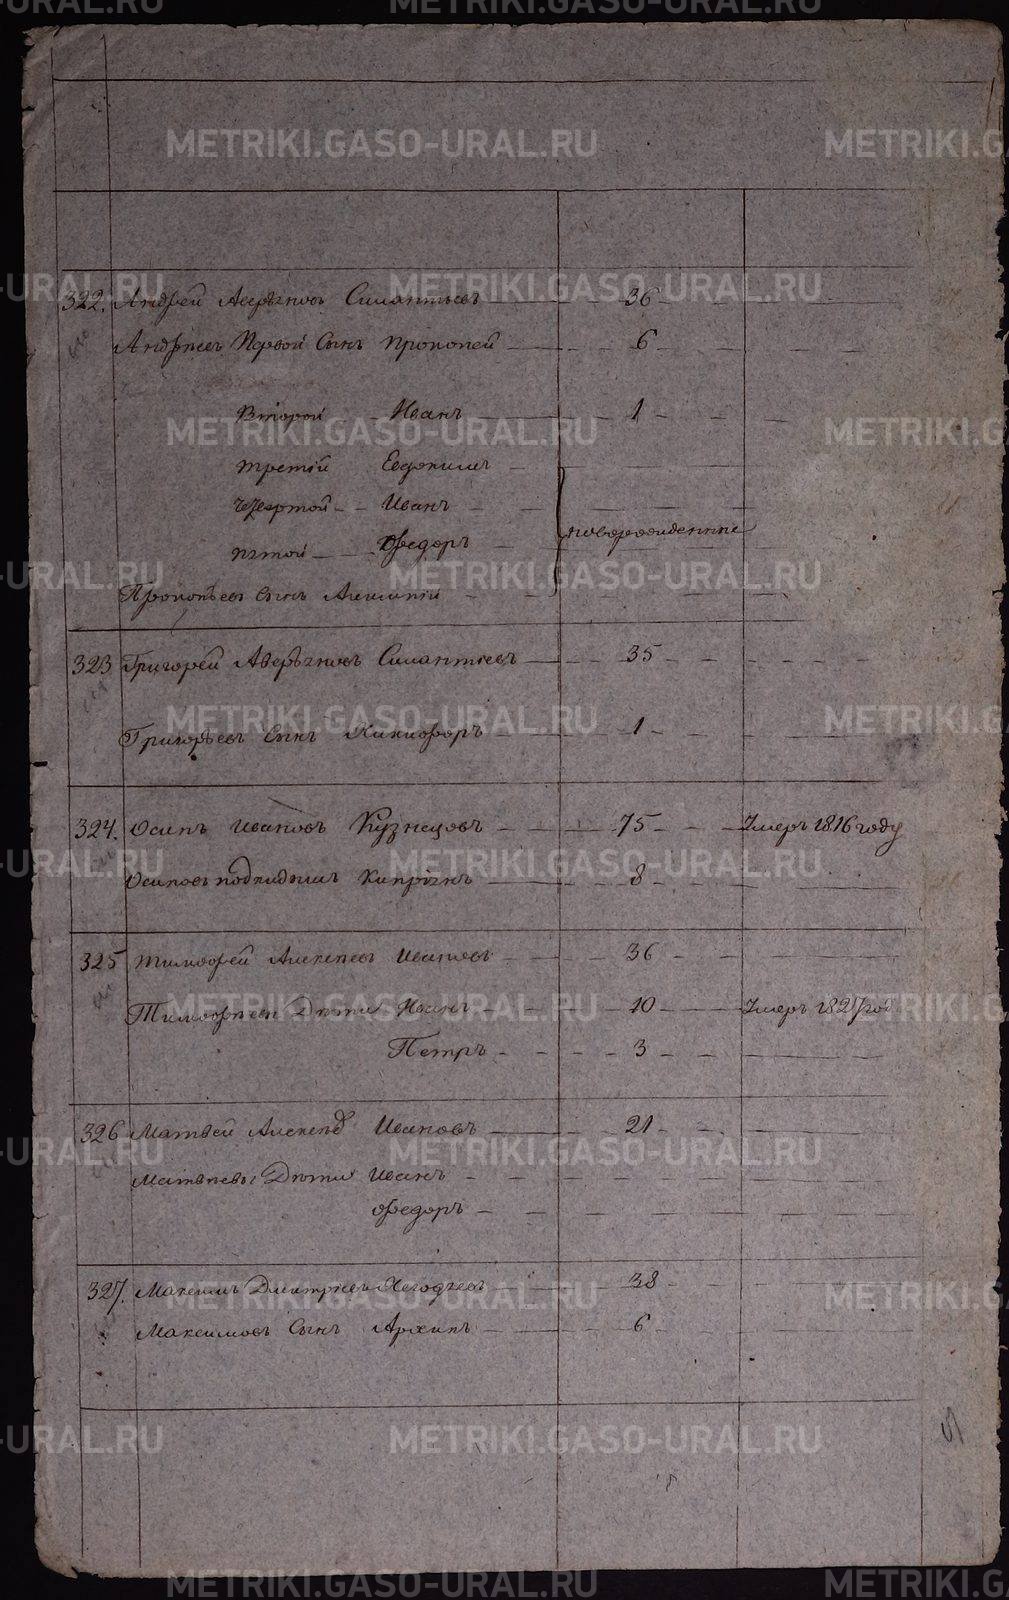 322. Андрей Аверьяновъ Силантьевъ 36
Андреевъ Первой Сынъ Прокопей 6
Второй Иванъ 1
третій Евдокимъ
Четвертой Иванъ
пятой Федоръ новорожденные
Прокопьевъ Сынъ
323 Григорей Аверьяновъ Силантьевъ 35
Григорьевъ Сынъ Никифоръ 1
324. Осипъ Ивановъ Кузнецовъ 75 Умеръ 1816 году
Осиповъ подкидышъ Кипріянъ 8
325 Тимофей Алексеевъ Ивановъ 36
Тимофеевы Дети Иванъ 10 Умеръ 1827 год
Петръ 3
326 Матвей Ивановъ 21
Матвеевы Дети Иванъ
Федоръ
327. Максимъ Дмитріевъ 38
Максимовъ Сынъ Архипъ 6
METRIKI.GASO-URAL.RU